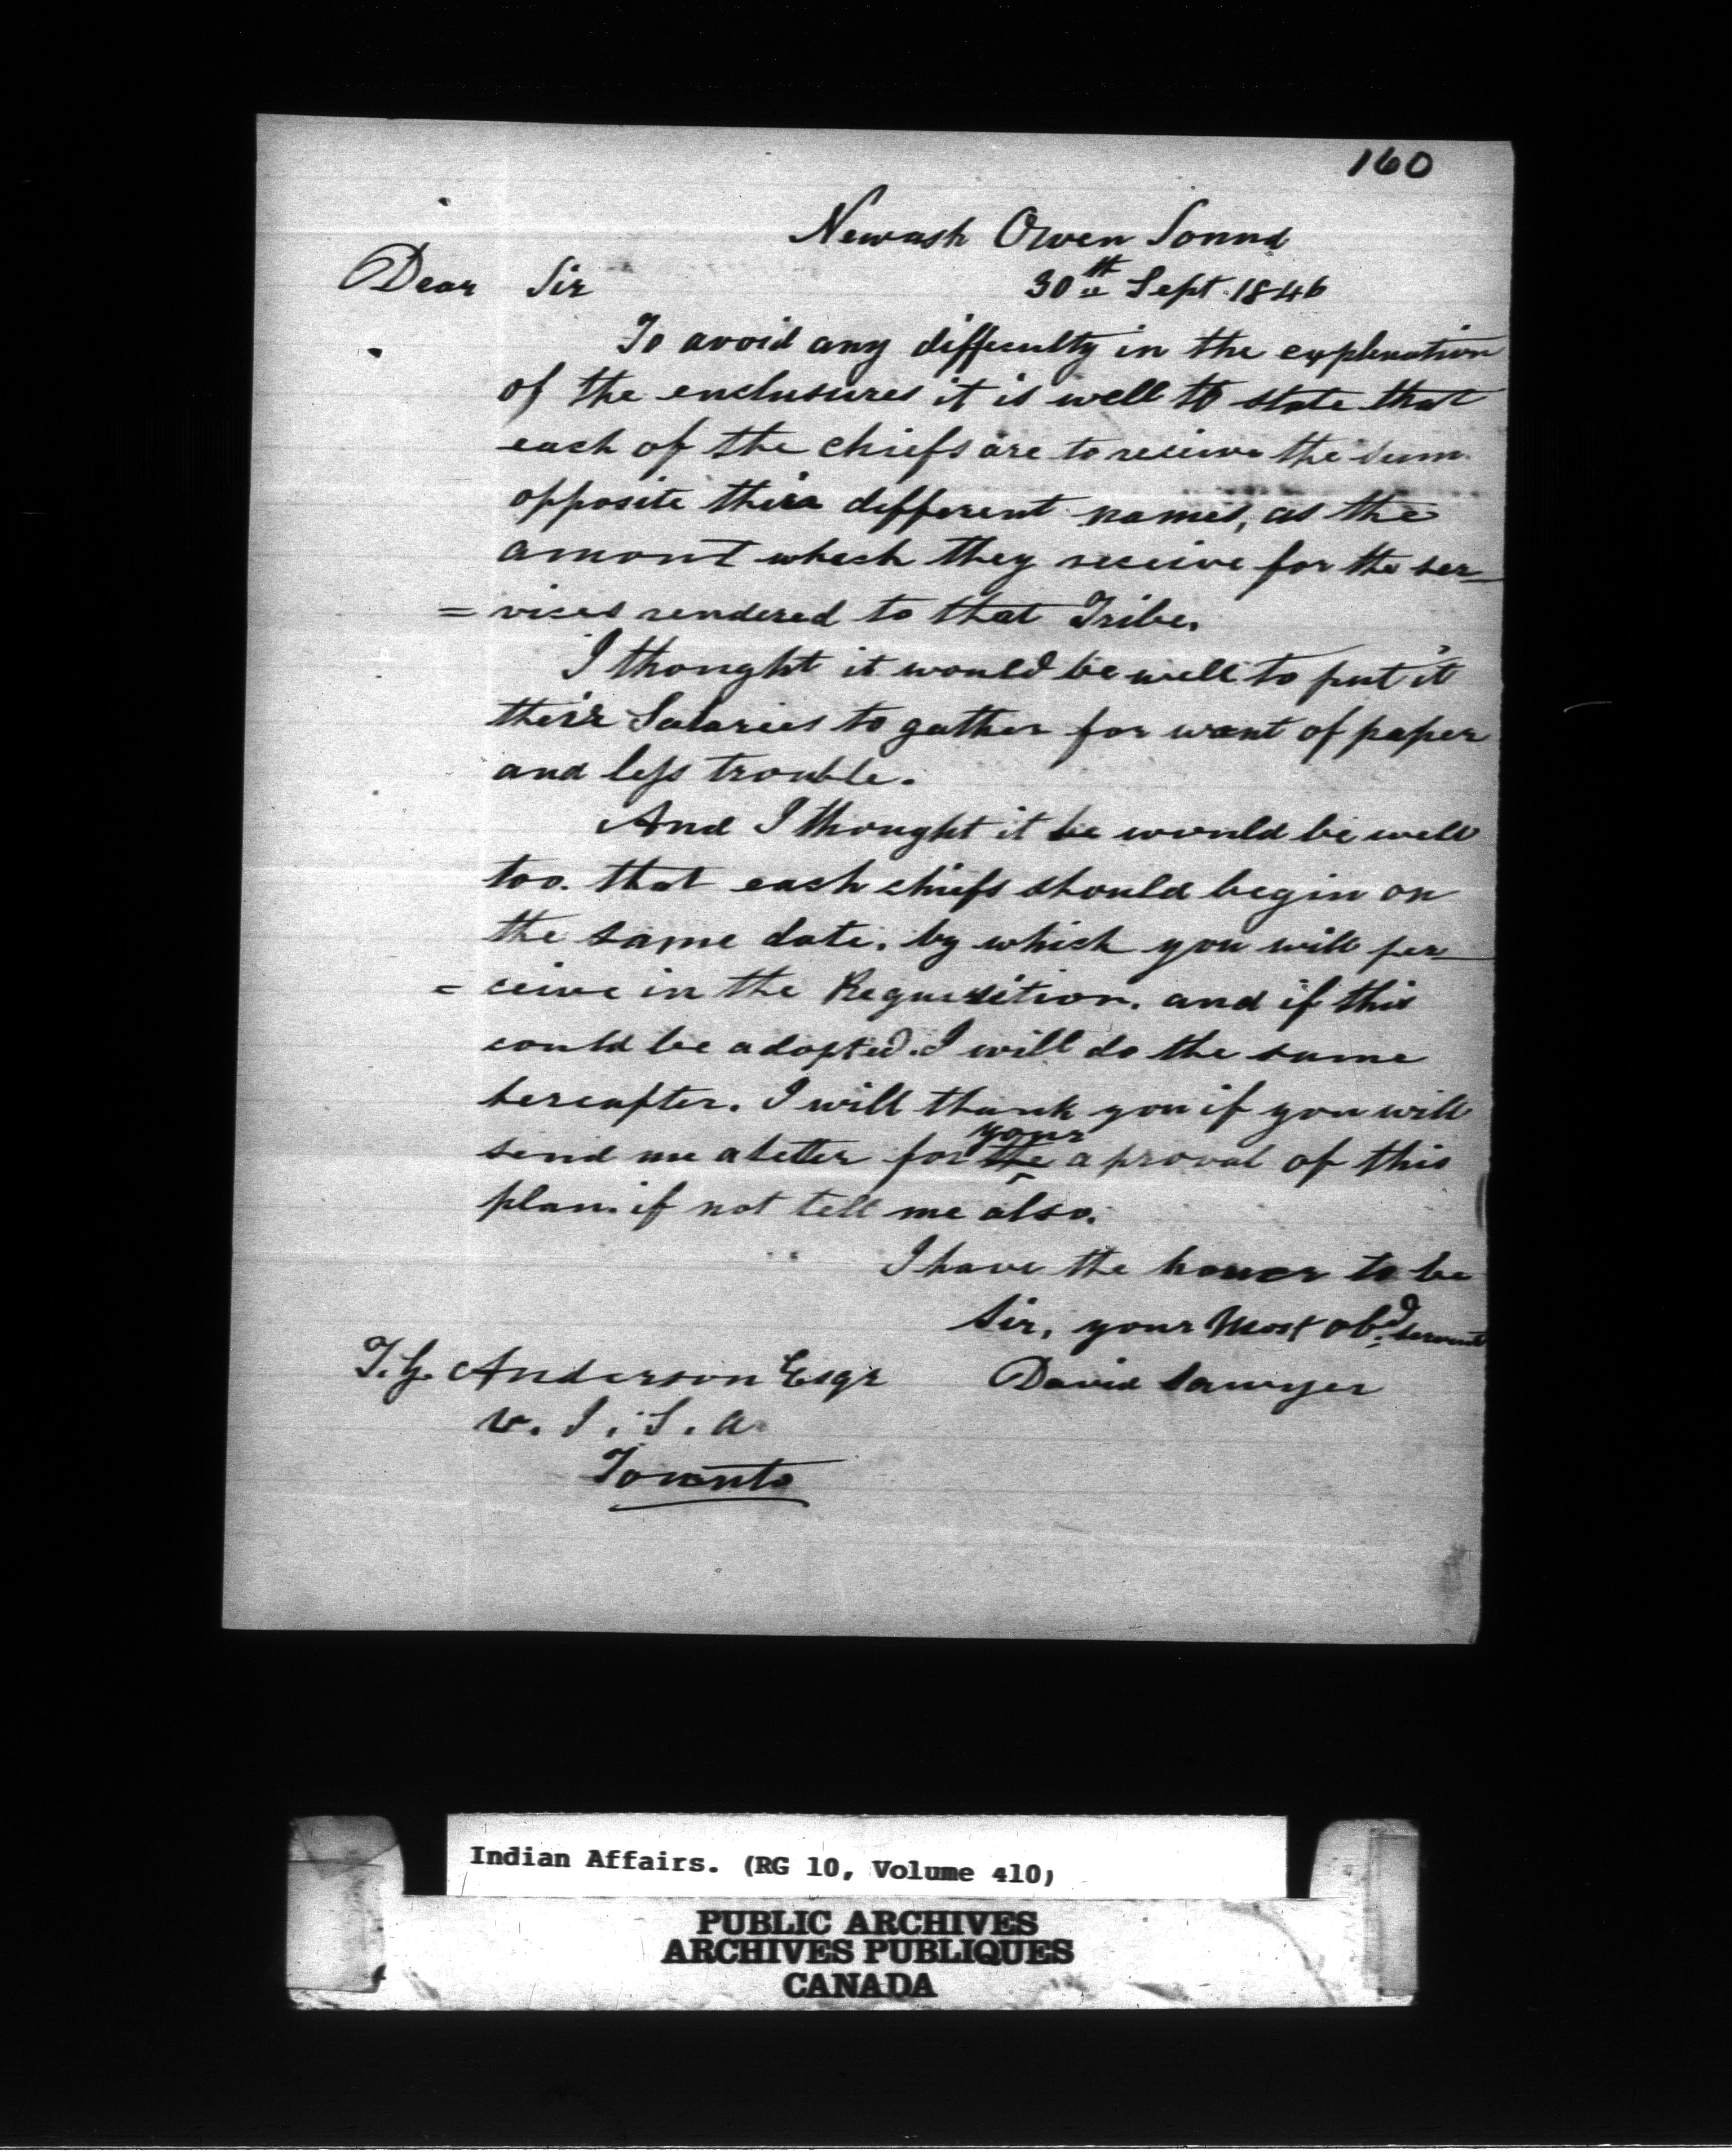 160
Newash Owen Sound
Dear Sir 30th Sept. 1846
To avoid any difficulty in the explenation
of the enclusures it is well to state that
each of the chiefs are to receive the sum
opposite their different names, as the
amont which they receive for the ser-
= vices rendered to that Tribe.
I thought it would be well to put it
their Salaries to gather for want of paper
and less trouble.
And I thought it be would be well
too. that each chiefs should begin on
the same date. by which you will per-
= ceive in the Requisition. and if this
could be adopted. I will do the same
hereafter. I will thank you if you will
your
send me a letter for the aproval of this
plan. if not tell me also.
I have the honor to be
Sir, your Most obd. servant
T. G. Anderson Esqr David Sawyer
v. I. S. a.
Toronto
Indian Affairs. (RG 10, Volume 410)
PUBLIC ARCHIVES
ARCHIVES PUBLIQUES
CANADA